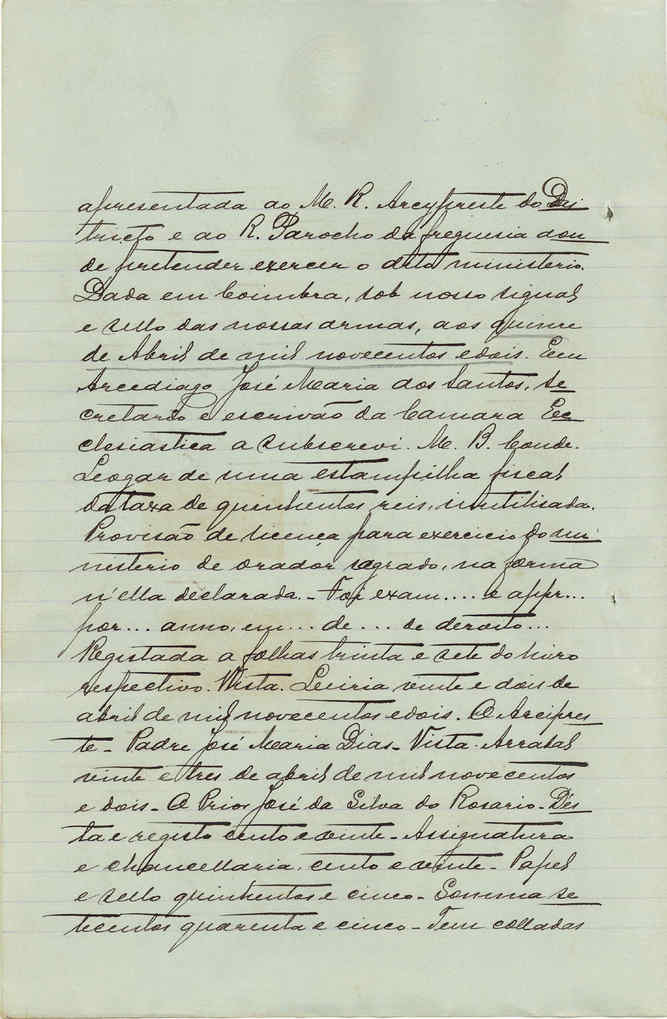 apresentada ao M. R. Arcypreste do Dis
tricto e ao R. Parocho da freguesia don
de pretender exercer o dito ministerio.
Dada em Coimbra, sob nosso signal
e sello das nossas armas, aos quinze
de Abril de mil novecentos e dois. E eu
Arcediago José Maria dos Santos, se
cretario e escrivão da Camara Ec
clesiastica a subscrevi. M. B. Conde.
Logar de uma estampilha fiscal
da taxa de quinhentos reis, inutilisada.
Provisão de licença para exercicio do mi
nisterio de orador sagrado, na forma
n'ella declarada. - Foi exam.... e appr...
por... anno, em... de... de dereito...
Registada a folhas trinta e sete do livro
respectivo. Vista. Leiria vinte e dois de
abril de mil novecentos e dois. O Arcipres
te - Padre José Maria Dias - Vista. Arrabal
vinte e tres de abril de mil novecentos
e dois - O Prior José da Silva do Rosario - Des
ta e registo cento e vinte - Assignatura
e chancellaria, cento e vinte - Papel
e sello quinhentos e cinco - Somma se
tecentos quarenta e cinco - Tem colladas